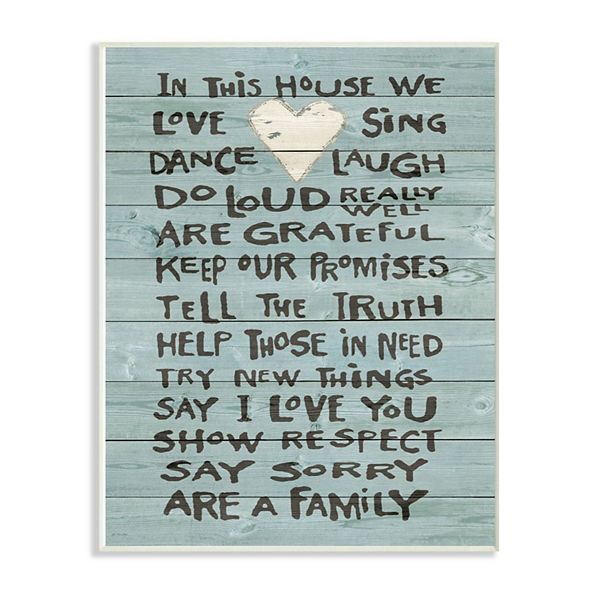 IN THIS HOUSE WE
LOVE SING
DANCE LAUGH
DO LOUD REALLY WELL
ARE GRATEFUL
KEEP OUR PROMISES
TELL THE TRUTH
HELP THOSE IN NEED
TRY NEW THINGS
SAY I LOVE YOU
SHOW RESPECT
SAY SORRY
ARE A FAMILY